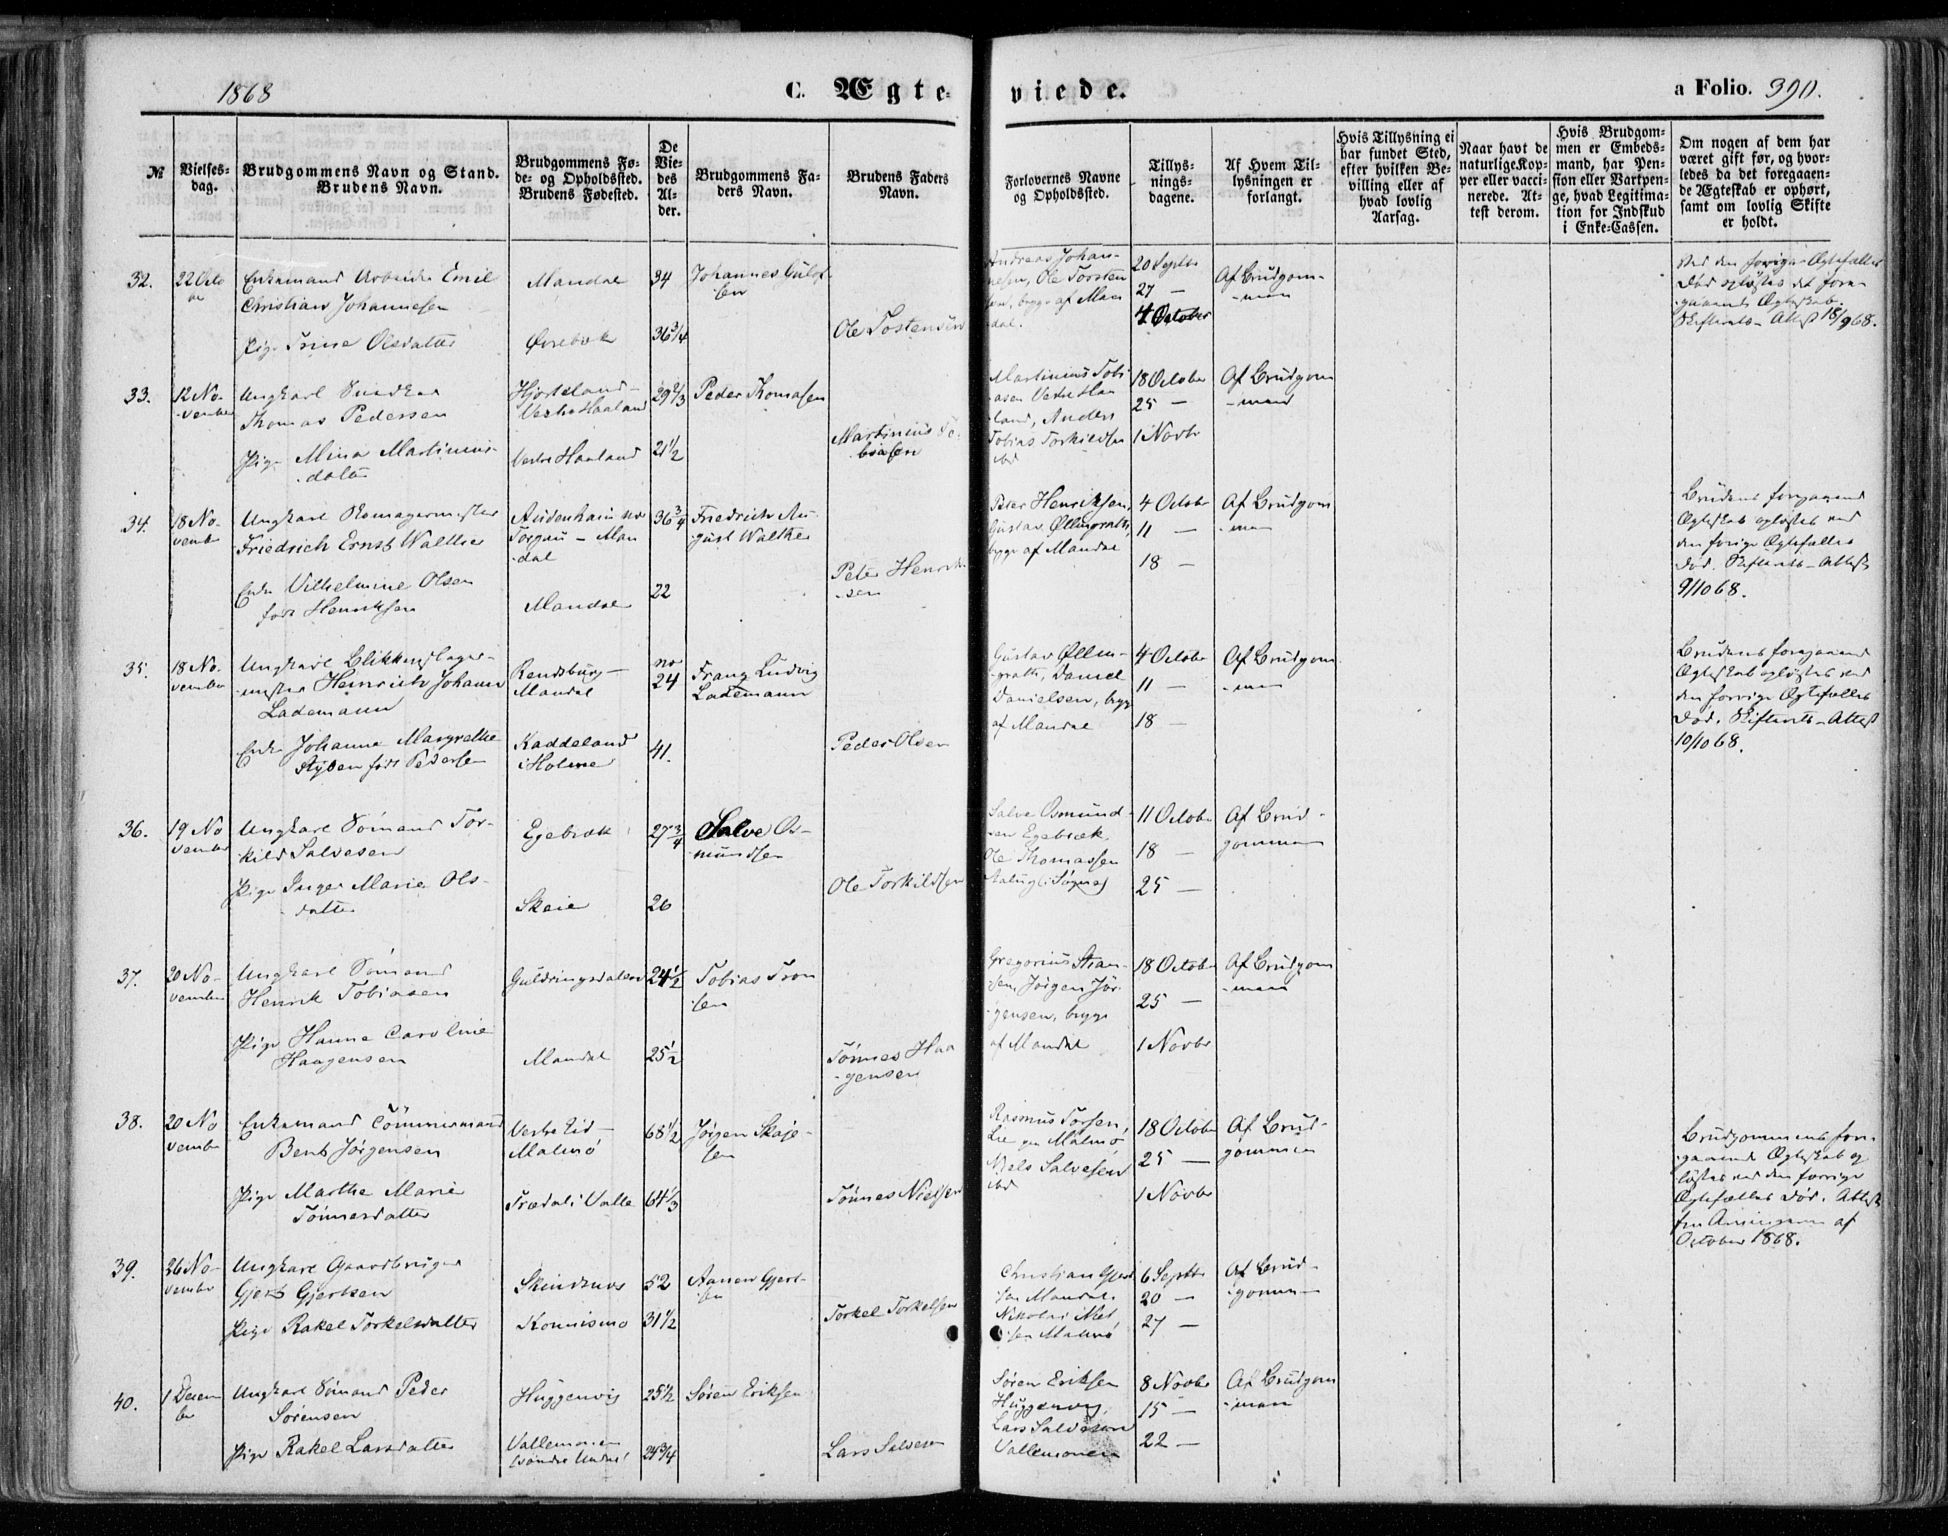 1868
C. Ægteviede.
a Folio. 390.
№
Vielses-
dag.
Brudgommens Navn og Stand.
Brudens Navn.
Brudgommens Fø-
de- og Opholdssted.
Brudens Fødested.
De
Vie-
des
Al-
der.
Brudgommens Fa-
ders Navn.
Brudens Faders
Navn.
Forlovernes Navne
og Opholdssted.
Tillys-
nings-
dagene.
Af Hvem Til-
lysningen er
forlangt.
Hvis Tillysning ei
har fundet Sted,
efter hvilken Be-
villing eller af
hvad lovlig
Aarsag.
Naar havt de
naturlige Kop-
per eller vacci-
nerede. At-
test derom.
Hvis Brudgom-
men er Embeds-
mand, har Pen-
sion eller Vartpen-
ge, hvad Legitima-
tion for Indskud
i Enke-Cassen.
Om nogen af dem har
været gift før, og hvor-
ledes da det foregaaen-
de Ægteskab er ophørt,
samt om lovlig Skifte
er holdt.
32.
22 Octo
ber
Enkemand Arbeider Emil
Christian Johannesen
Pige Trine Olsdatter
Mandal
Øvrebøk
34
36 3/4
Johannes Gulof
sen
Ole Tostensen
Andreas Johan-
nesen, Ole Torsten
sen, begge af Man
dal.
20 Septbr
27 —
4 October
Af Brudgom-
-men
Ved den forrige Ægtefælles
Død opløstes det fore-
gaaende Ægteskab.
Skifterets-Attest 18/9 68.
33.
12 No-
vember
Ungkarl Snedker
Thomas Pedersen
Pige Mina Martinius-
datter
Hjorteland-
Vestre Haaland
Vestre Haaland
29 2/3
21 1/2
Peder Thomasen
Martinius To-
biasen
Martinius Tobi
asen Vestre Haa
land, Anders
Tobias Torkildsen
ibd
18 October
25 —
1 Novbr
Af Brudgom
-men
34.
18 No-
vember
Ungkarl Skomagermester
Friedrich Ernst Walther
Enke Vilhelmine Olsen
født Henriksen
Audenhain ved
Torgau – Man
dal
Mandal
36 3/4
22
Friedrich Au-
gust Walther
Peter Henrik
-sen
Peter Henriksen,
Gustav Øllmgrath,
begge af Mandal
4 Octobr
11 —
18 —
Af Brudgom
-men
Brudens foregaaende
Ægteskab opløstes ved
den forrige Ægtefælles
Død. Skifterets-Attest
9/10 68.
35.
18 No-
vember
Ungkarl Blikkenslager-
mester Heinrich Johann
Lademann
Enke Johanne Margrethe
Styben født Pedersen
Rendsburg —
Mandal
Kaddeland
i Holme
24
41.
Franz Ludvig
Lademann
Peder Olsen
Gustav Øllm-
grath, Daniel
Danielsen, begge
af Mandal
4 Octobr
11 —
18 —
Af Brudgom
-men
Brudens foregaaende
Ægteskab opløstes ved
den forrige Ægtefælles
Død. Skifterets-Attest
10/10 68.
36.
19 No
vember
Ungkarl Sømand Tor-
kild Salvesen
Pige Inger Marie Ols-
datter
Egebræk
Skoie
27 3/4
26
Salve Os-
mundsen
Ole Torkildsen
Salve Osmund-
sen Egebræk
Ole Thomassen
i Søgne
11 October
18 —
25 —
Af Brud-
gommen
37.
20 No-
vember
Ungkarl Sømand
Henrik Tobiasen
Pige Hanne Caroline
Haagensen
Guldringsdalen
Mandal
24 1/2
25 1/2
Tobias Tron
sen
Tønnes Haa
-gensen
Gregorius Aran-
sen, Jørgen Jør-
gensen, begge
af Mandal
18 Octobr
25 —
1 Novbr
Af Brudgom
-men
38.
20 No
vember
Enkemand Tømmermand
Bent Jørgensen
Pige Marthe Marie
Tønnesdatter
Vestre Lid-
Malmø
Trædal i Valle
68 1/2
64 1/3
Jørgen Skaje-
sen
Tønnes Nielsen
Rasmus Torsen,
Lie ved Malmø
Niels Salvesen
ibd
18 Octobr
25 —
1 Novbr
Af Brud-
gommen
Brudgommens fore-
gaaende Ægteskab op
løstes ved den forrige
Ægtefælles Død. Attest
fra af
October 1868.
39.
26 No-
vember
Ungkarl Gaardbruger
Gjert Gjertsen
Pige Rakel Torkelsdatter
Skindsnes
Konnismo
52
31 1/2
Aanen Gjert-
sen
Torkel Torkelsen
Christian Gjert
sen Mandal.
Nikolai Niel
sen Malmø
6 Septbr
20 —
27 —
Af Brud-
gommen
40.
1 Decem
ber
Ungkarl Sømand Peder
Sørensen
Pige Rakel Larsdatter
Huggenvig
Vallemonen
25 1/2
24 3/4
Søren Eriksen
Lars Salvesen
Søren Eriksen
Huggenvig,
Lars Salvesen
Vallemonen
8 Novbr
15 —
22 —
Af Brudgom
-men